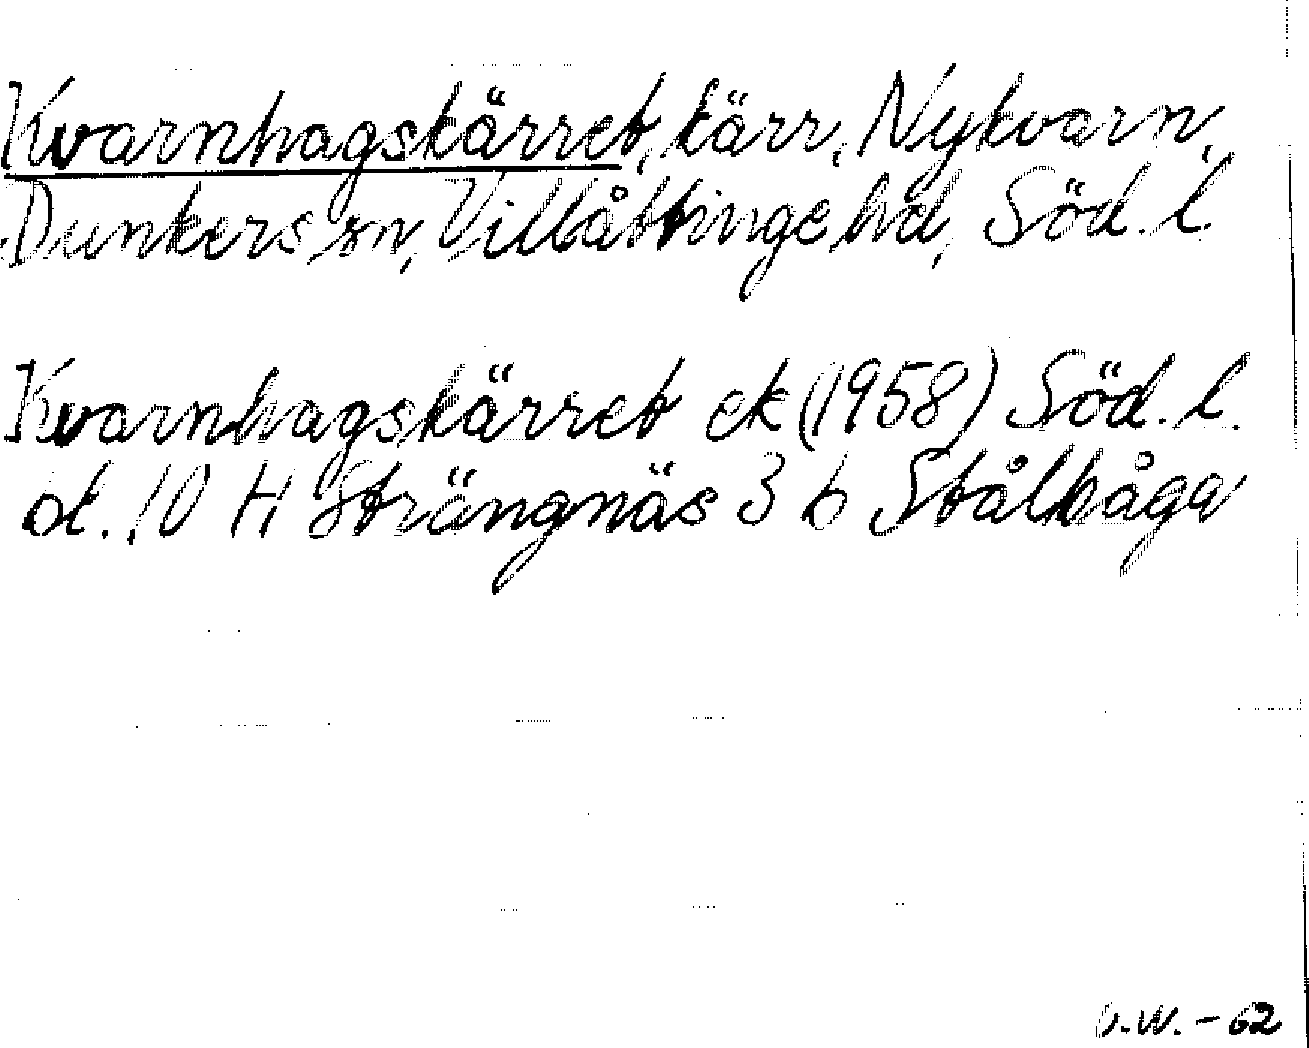 Kvarnhagskärret, kärr, Nykvarn,
Dunkers sn, Villåttinge hd, Söd. l.
Kvarnhagskärret ek (1958) Söd. l.
bl. 10 H Strängnäs 3 b Stålhåga
.W. - 62